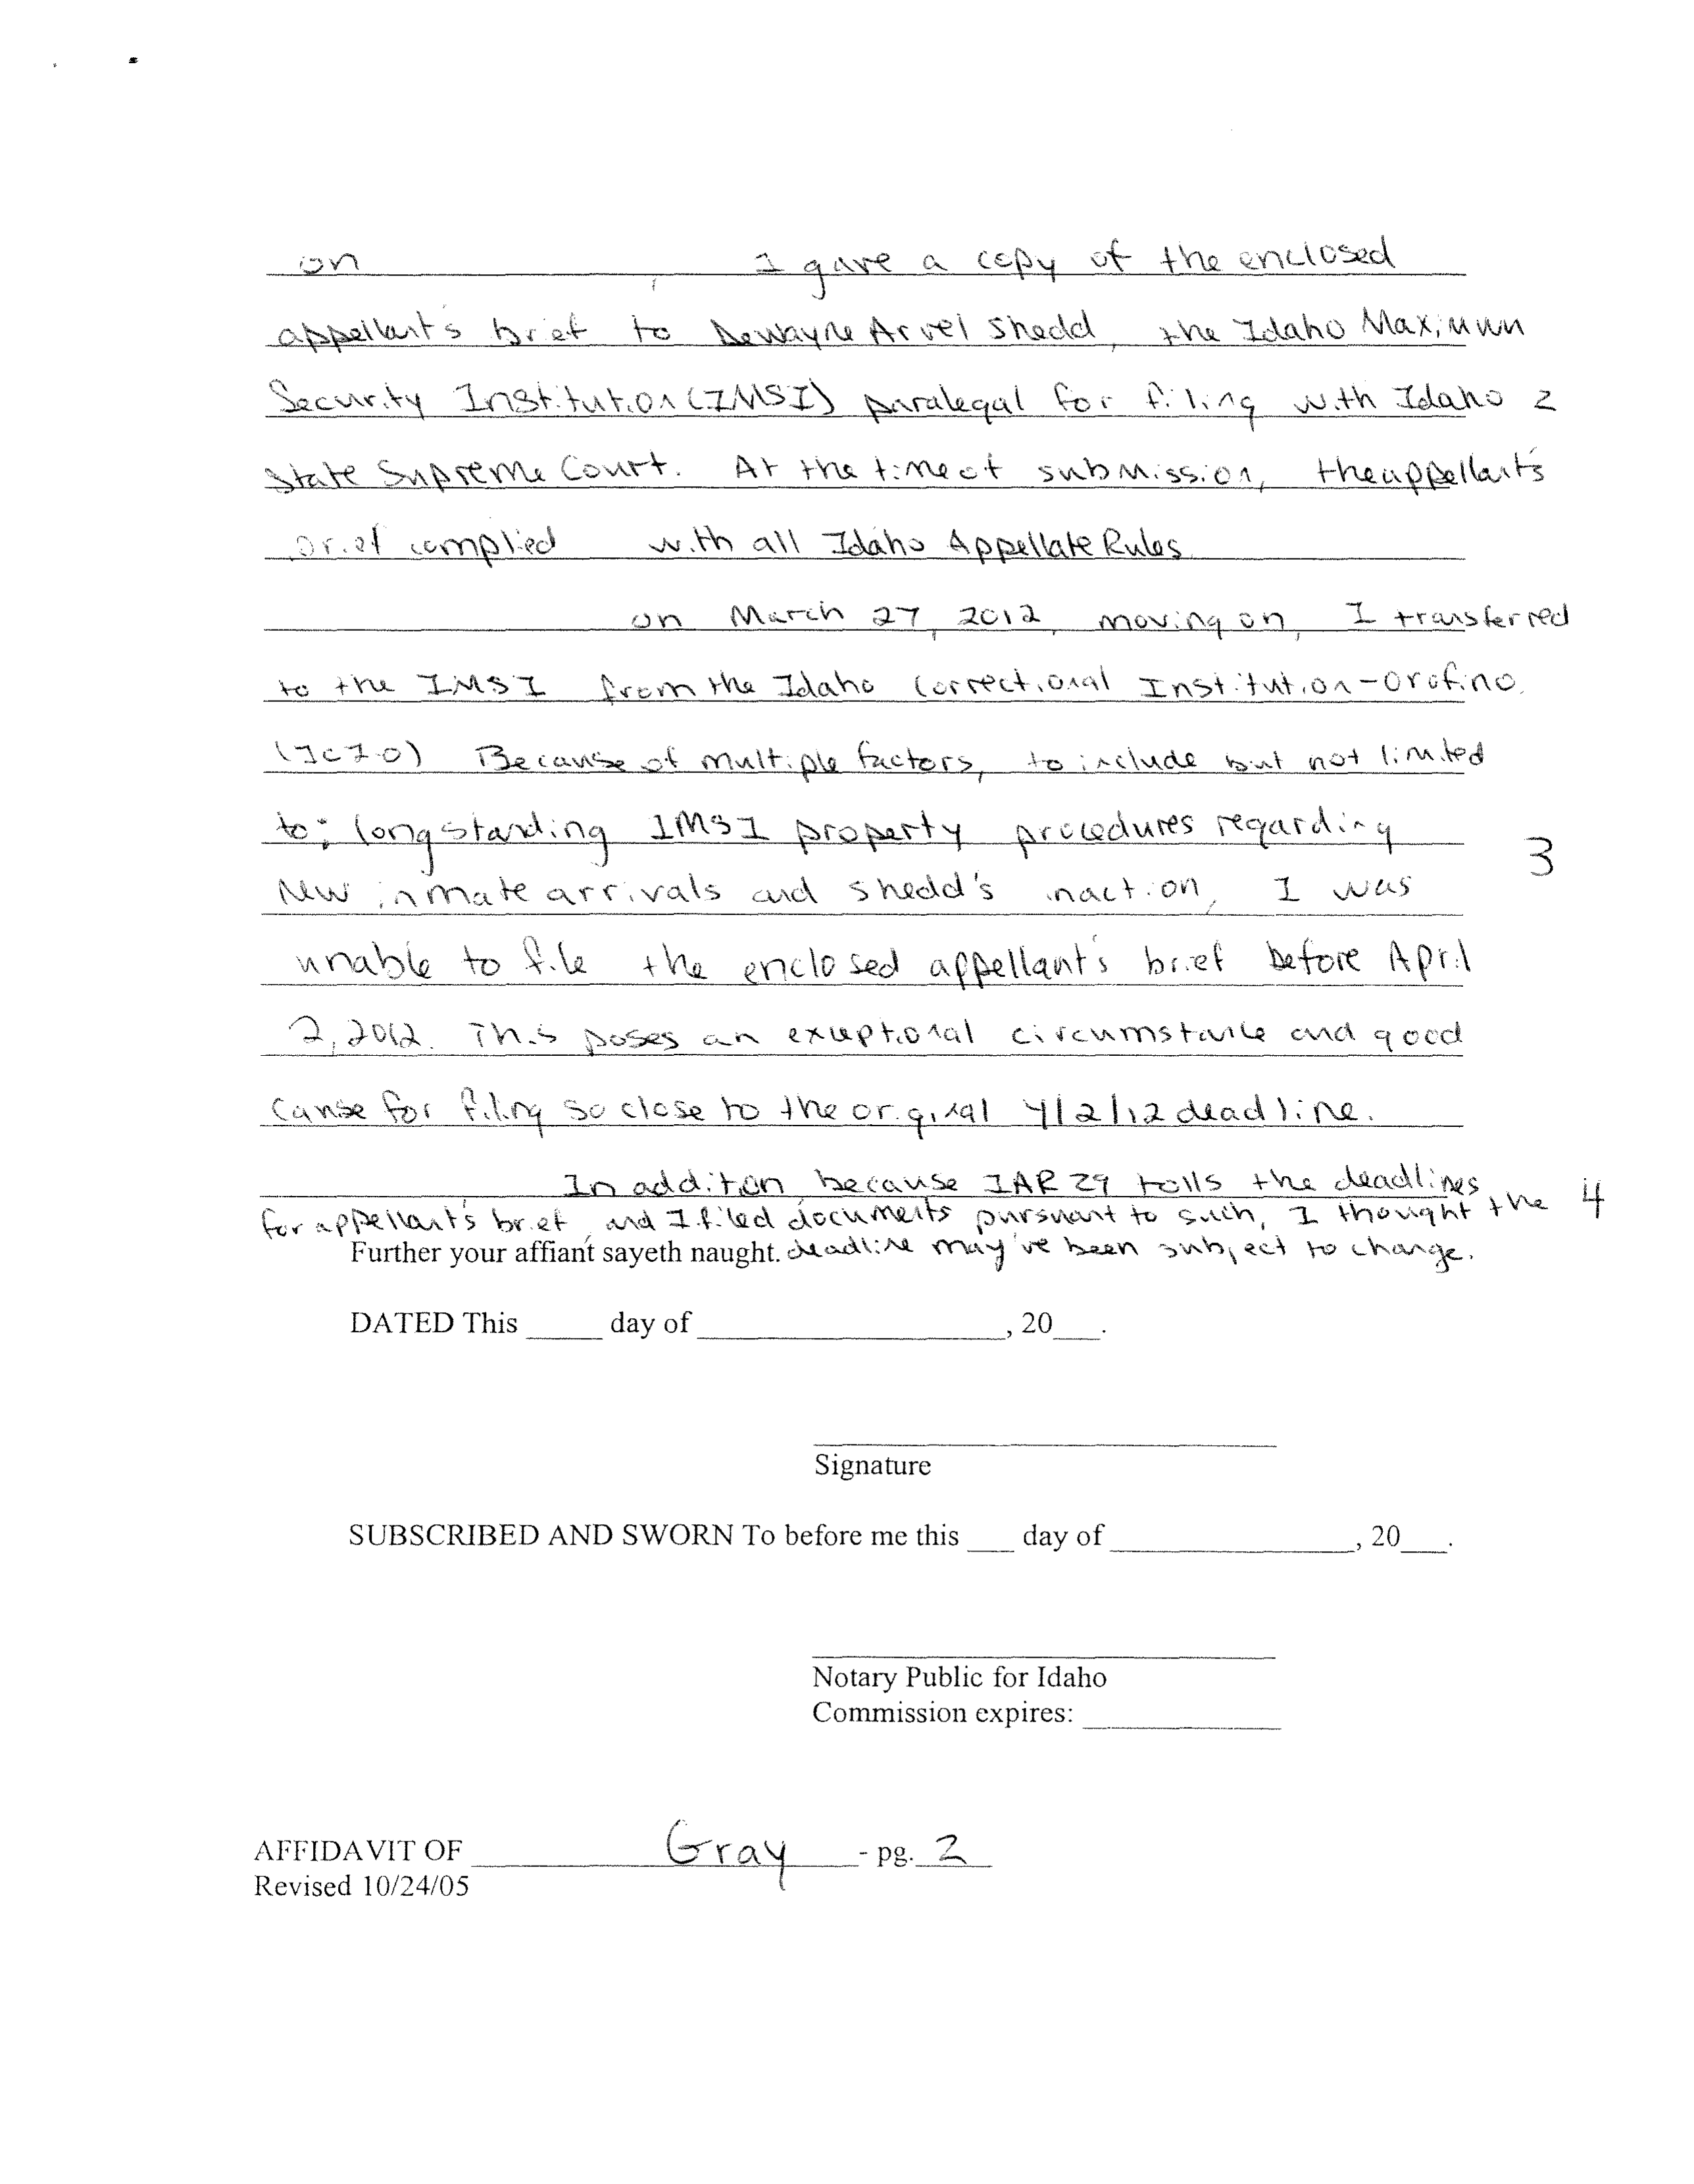 on ____________, I gave a copy of the enclosed
appellant's brief to DeWayne Arvel Shedd, the Idaho Maximum
Security Institution (IMSI) paralegal for filing with Idaho 2
State Supreme Court. At the time of submission, the appellant's
brief complied with all Idaho Appellate Rules
on March 27, 2012, moving on, I transferred
to the IMSI from the Idaho Correctional Institution-Orofino.
(ICI-O) Because of multiple factors, to include but not limited
to: longstanding IMSI property procedures regarding 3
New inmate arrivals and Shedd's inaction, I was
unable to file the enclosed appellant's brief before April
2, 2012. This poses an exceptional circumstance and good
cause for filing so close to the original 4/2/12 deadline.
In addition, because IAR 29 tolls the deadlines
for appellant's brief, and I filed documents pursuant to such, I thought the 4
Further your affiant sayeth naught. deadline may've been subject to change.
DATED This ____ day of ____________, 20___.
Signature
SUBSCRIBED AND SWORN To before me this ___ day of ____________, 20___.
Notary Public for Idaho
Commission expires: ____________
AFFIDAVIT OF Gray - pg. 2
Revised 10/24/05